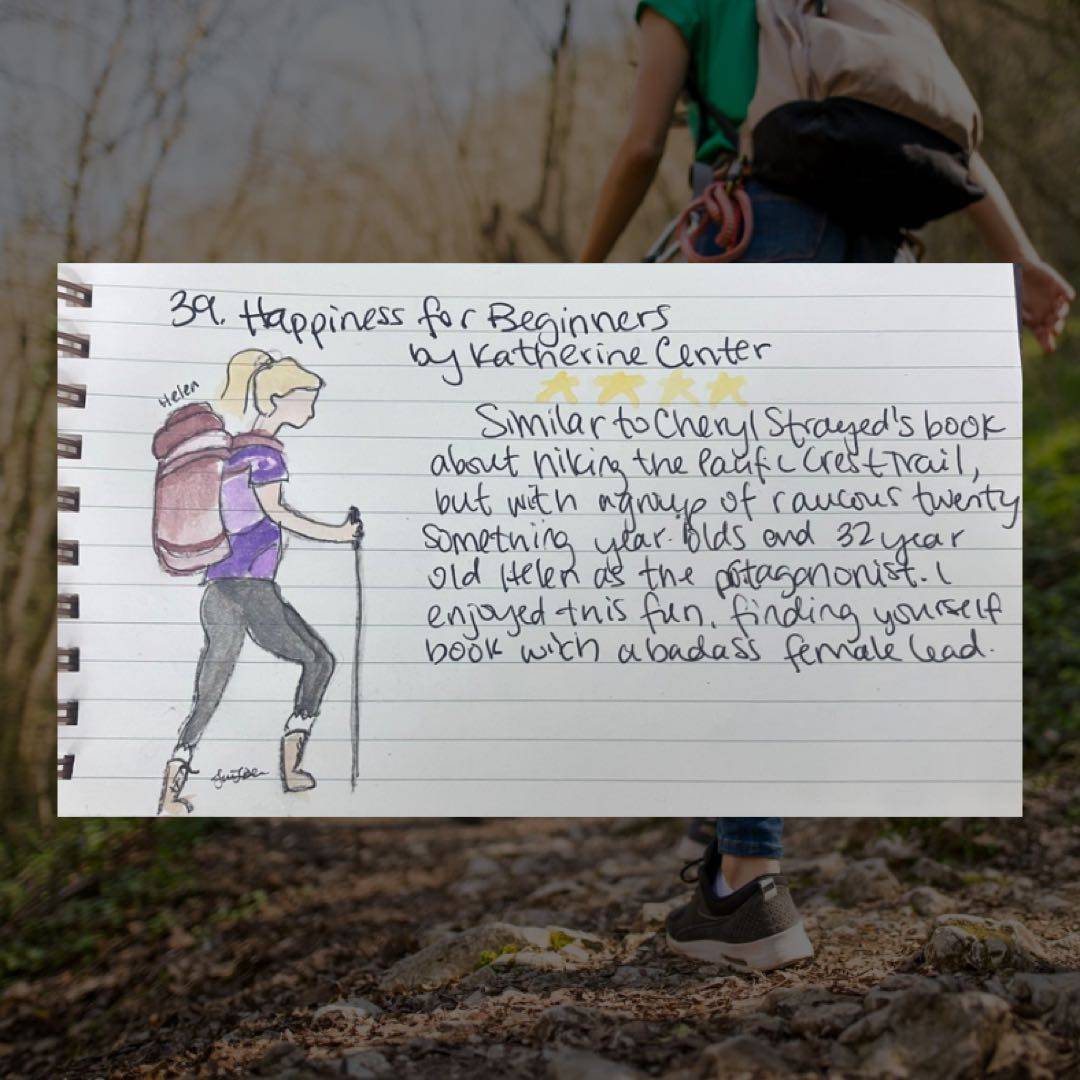 39. Happiness for Beginners
by Katherine Center
Helen
Similar to Cheryl Strayed's book
about hiking the Pacific Crest Trail,
but with a group of raucous twenty
something year olds and 32 year
old Helen as the protagononist. I
enjoyed this fun, finding yourself
book with a badass female lead.